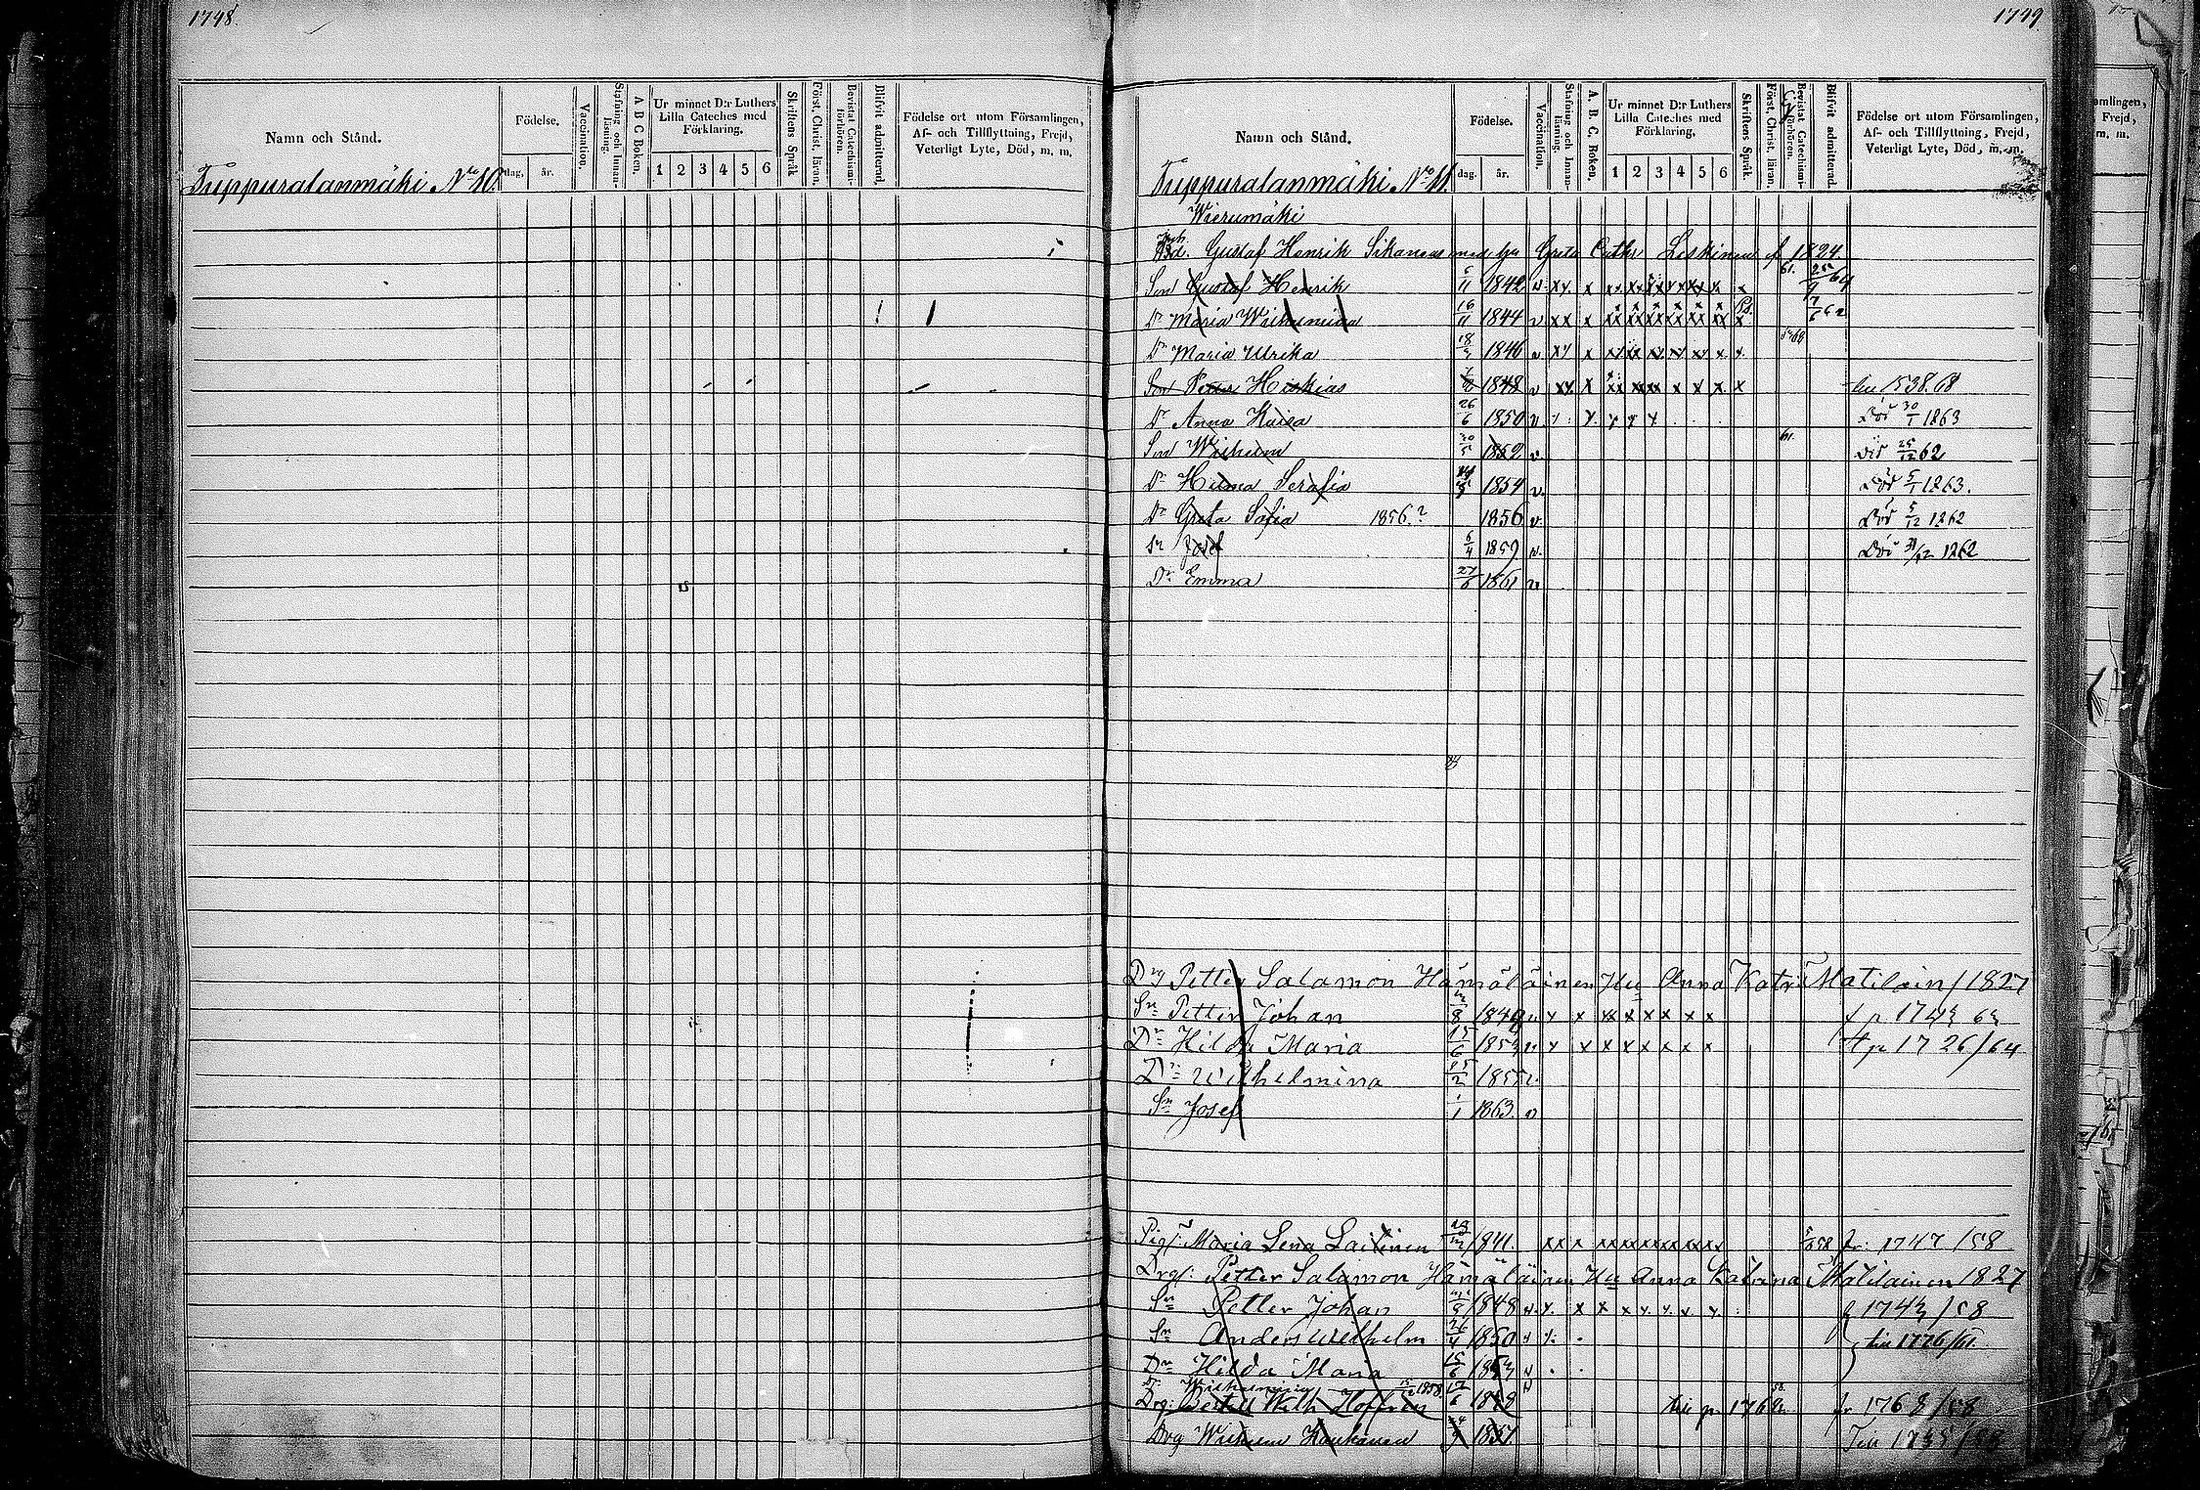 1748.
Namn och Stånd.
Födelse.
dag.
år.
Vaccination.
Stafning och Innanläsning.
A B C Boken.
Ur minnet D:r Luthers Lilla Cateches med Förklaring.
1 2 3 4 5 6
Skriftens Språk
Först. Christ. läran.
Bevistat Catechismiförhören.
Blifvit admitterad.
Födelse ort utom Församlingen, Af- och Tillflyttning, Frejd, Veterligt Lyte, Död, m. m.
Tuppuralanmäki No 10.
1749
Namn och Stånd.
Födelse.
dag.
år.
Vaccination.
Stafning och Innanläsning.
A. B. C. Boken.
Ur minnet D:r Luthers Lilla Cateches med Förklaring.
1 2 3 4 5 6
Skriftens Språk
Först. Christ. läran.
Bevistat Catechismiförhören.
Blifvit admitterad.
Födelse ort utom Församlingen, Af- och Tillflyttning, Frejd, Veterligt Lyte, Död, m. m.
Tuppuralanmäki No 11.
Wierumäki
Gustaf Henrik Sikanen med hu Greta Cathr Leskinen f 1824.
Son Gustaf Henrik 5/11 1842 v xx x x
Dr Maria Wilhelmina 16/11 1844 v xx x 7/6 62
Dr Maria Ulrika 18/9 1846 v xx x
Son Petter Heskias 1848 v xx x 1538.68
Dr Anna Kaisa 26/6 1850 v Död 30/1 1863
Son Wilhelm 30/5 1852 v. död 25/12 62
Dr Hilma Serafia 1854 v. Död 5/1 1863.
Dr Greta Sofia 1856.? 1856 v. Död 5/12 1862
Sn Josef 6/4 1859 v. Död 31/12 1862
Dr Emma 27/6 1861 v
Drg Petter Salamon Hämäläinen Hu Anna Katri Matilain 1827
Sn Petter Johan 1849 v x x xx x x x x x
Dr Hilda Maria 15/6 1853 v x x x x x x x x 1726/64
Dr Wilhelmina 15/2 1855 v
Sn Josef 1/1 1863. v
Pig: Maria Lena Laitinen 1841. xx x fr: 1747 /58
Drg: Petter Salamon Hämäläinen Hu Anna Katrina Matilainen 1827
Sn Petter Johan 1848 v x. x x x x. x x f 1743 /58
Sn Anders Wilhelm 26/4 1850 till 1776/61.
Dr Hilda Maria 15/6 1853 v
Dr Wilhelmina 1858
Drg: Wilh Hoffrén 17/6 1828 till p. fr 1768 /58
Drg Wilhelm Kaukanen Till